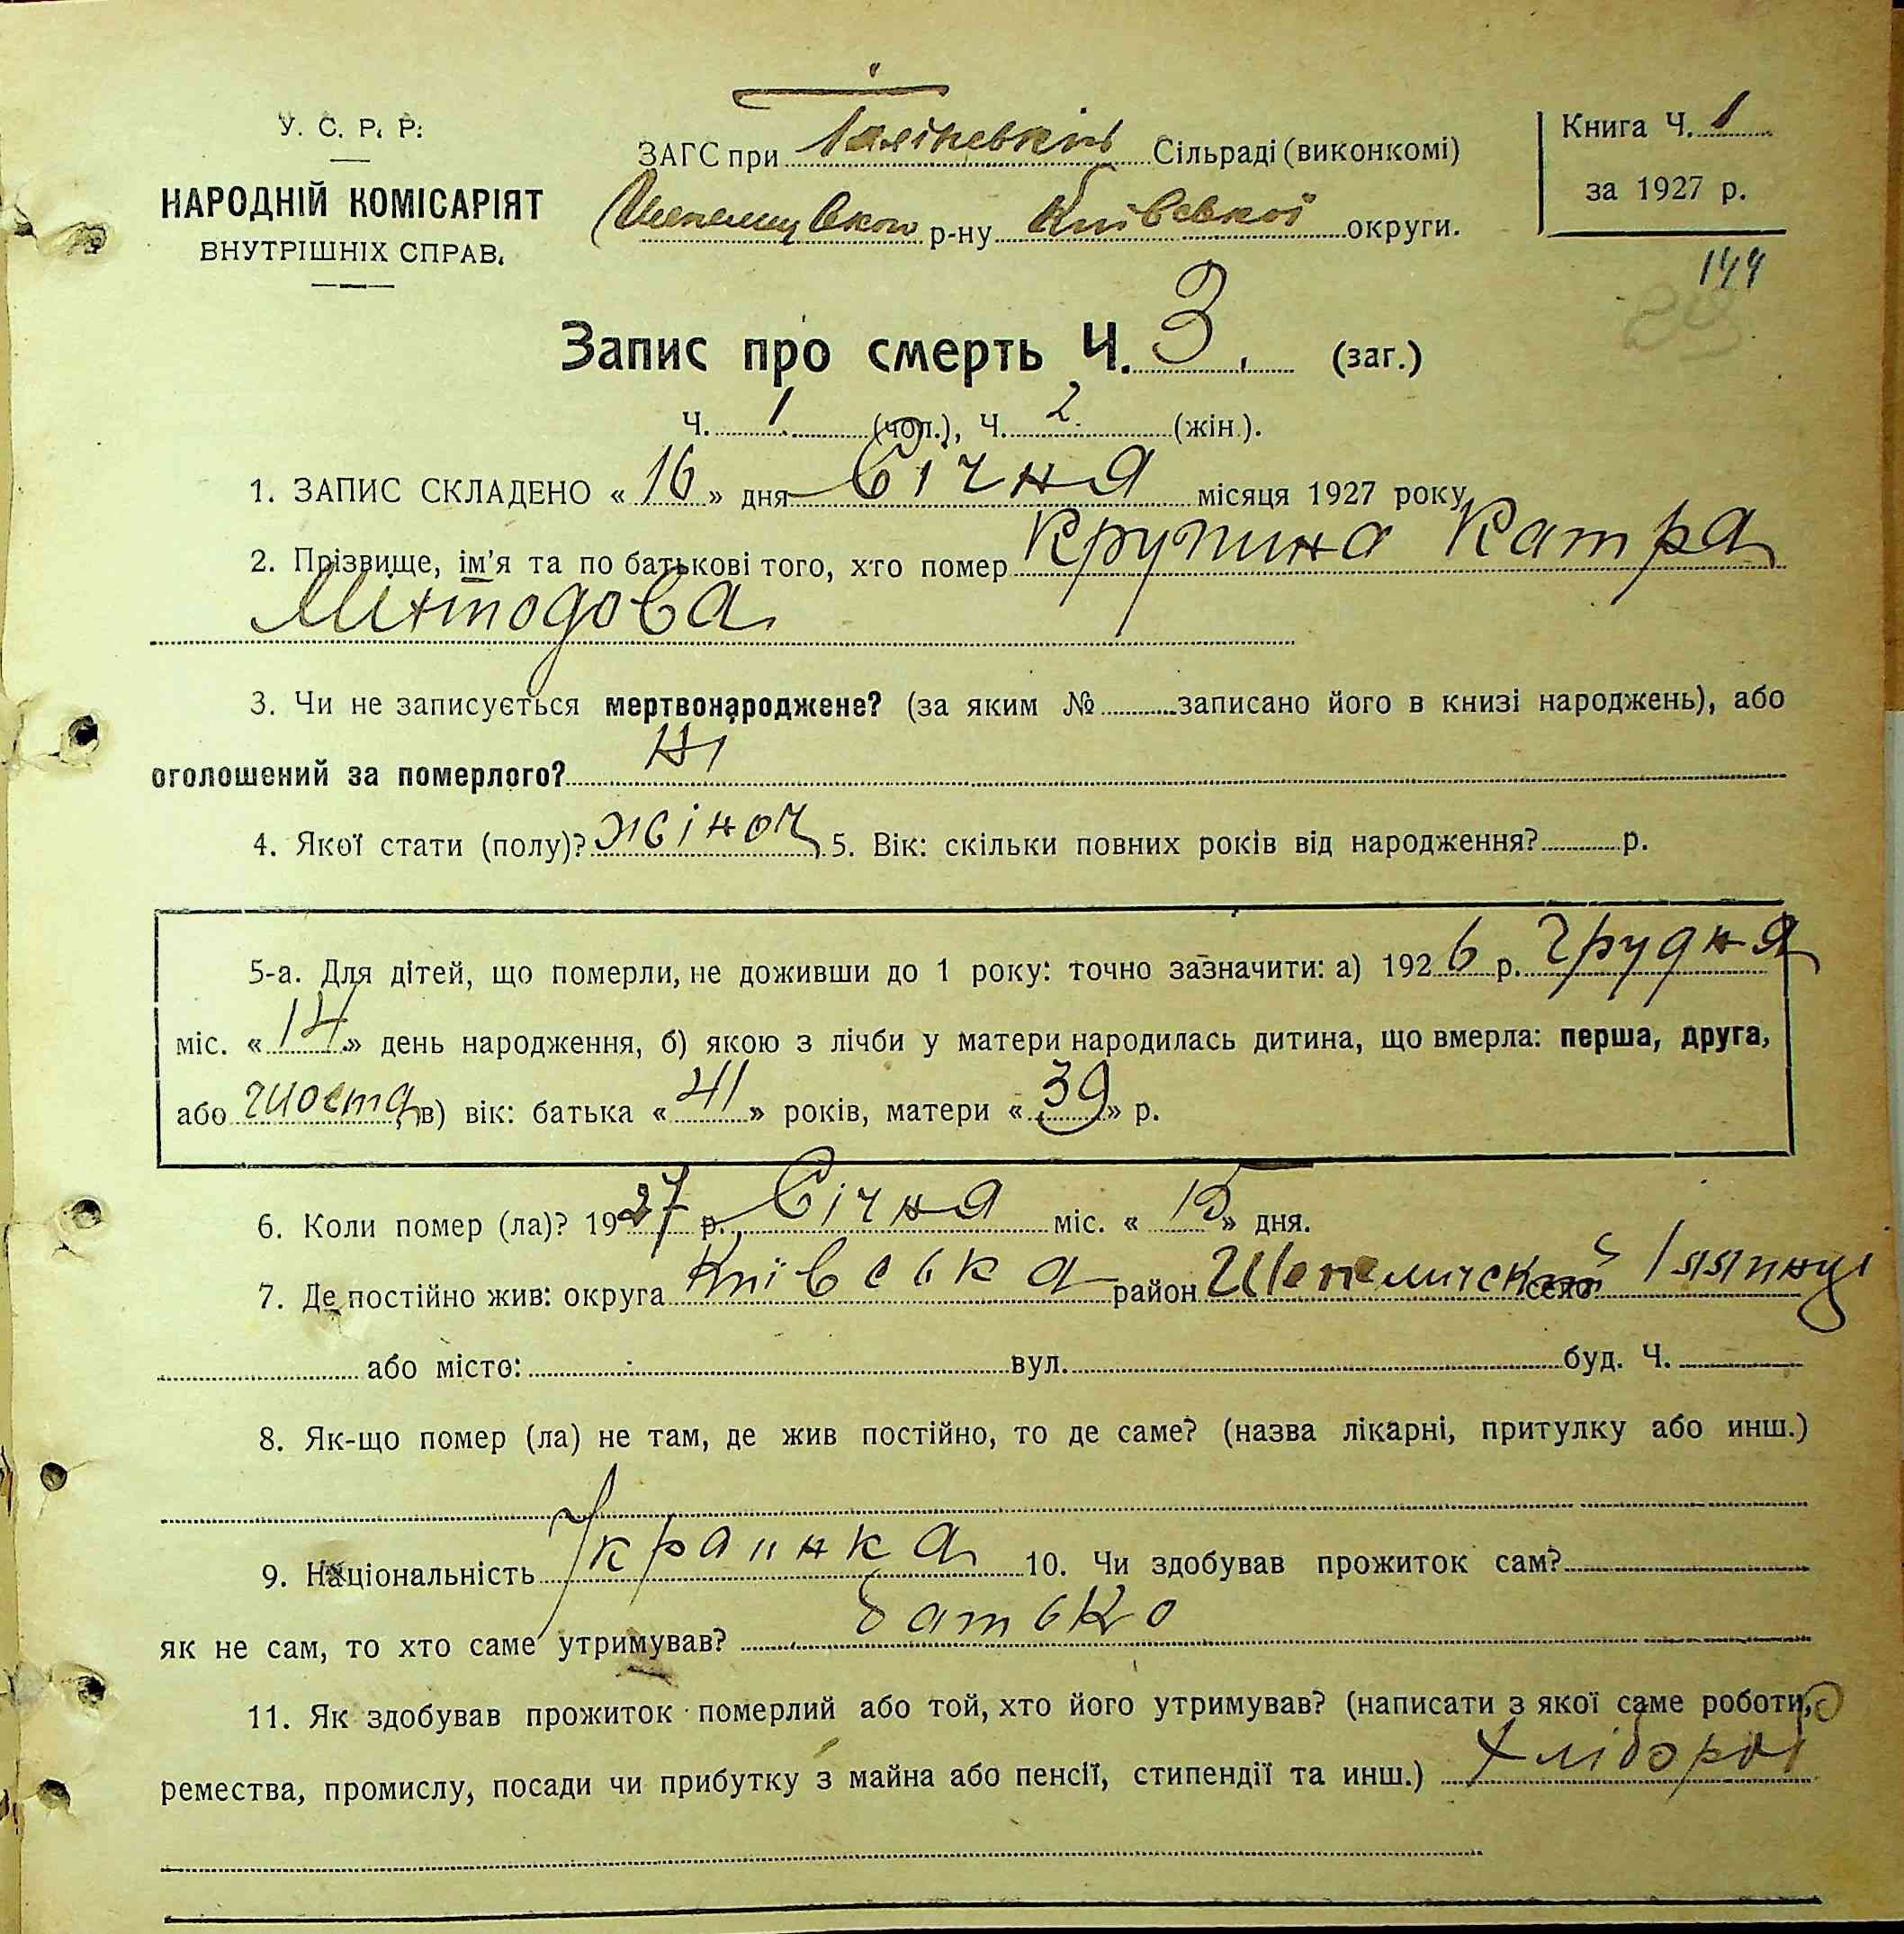 У. С. Р. Р.
НАРОДНІЙ КОМІСАРІЯТ
ВНУТРІШНІХ СПРАВ.
ЗАГС при Сільраді (виконкомі)
р-ну Київської округи.
Книга Ч. 1
за 1927 р.
144
Запис про смерть Ч. 3. (заг.)
Ч. 1 (чол.), Ч. 2 (жін.).
1. ЗАПИС СКЛАДЕНО « 16 » дня Січня місяця 1927 року
2. Прізвище, ім'я та по батькові того, хто помер Крупина Катра
Мітодова
3. Чи не записується мертвонароджене? (за яким № записано його в книзі народжень), або
оголошений за померлого? Ні
4. Якої стати (полу)? жіноч 5. Вік: скільки повних років від народження? р.
5-а. Для дітей, що померли, не доживши до 1 року: точно зазначити: а) 1926 р. Грудня
міс. « 14 » день народження, б) якою з лічби у матери народилась дитина, що вмерла: перша, друга,
або шоста в) вік: батька « 41 » років, матери « 39 » р.
6. Коли помер (ла)? 1927 р. Січня міс. « 15 » дня.
7. Де постійно жив: округа Київська район село
або місто: вул. буд. Ч.
8. Як-що помер (ла) не там, де жив постійно, то де саме? (назва лікарні, притулку або инш.)
9. Національність Украинка 10. Чи здобував прожиток сам?
як не сам, то хто саме утримував? батько
11. Як здобував прожиток померлий або той, хто його утримував? (написати з якої саме роботи,
ремества, промислу, посади чи прибутку з майна або пенсії, стипендії та инш.) Хлібороб